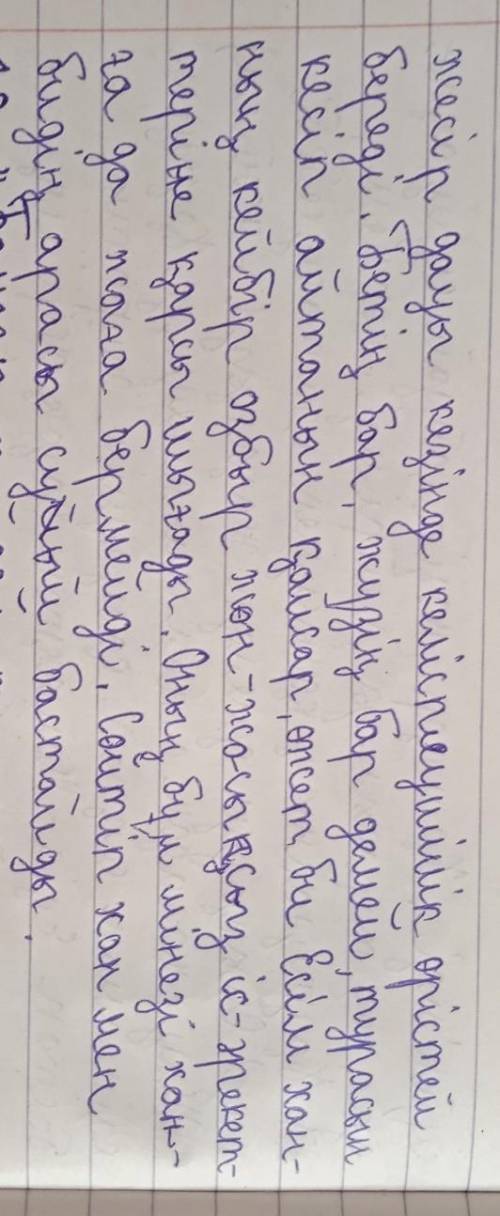 жесір дауы кезінде келіспеушілік өрістей
береді. Бетің бар, жүзің бар демей, турасын
кесіп айтатын қайсар, өжет би Есім хан-
ның кейбір озбыр жөн-жосықсыз іс-әрекет-
теріне қарсы шығады. Оның бұл мінезі хан-
ға да жаға бермейді. Сөйтіп хан мен
бидің арасы суый бастайды.